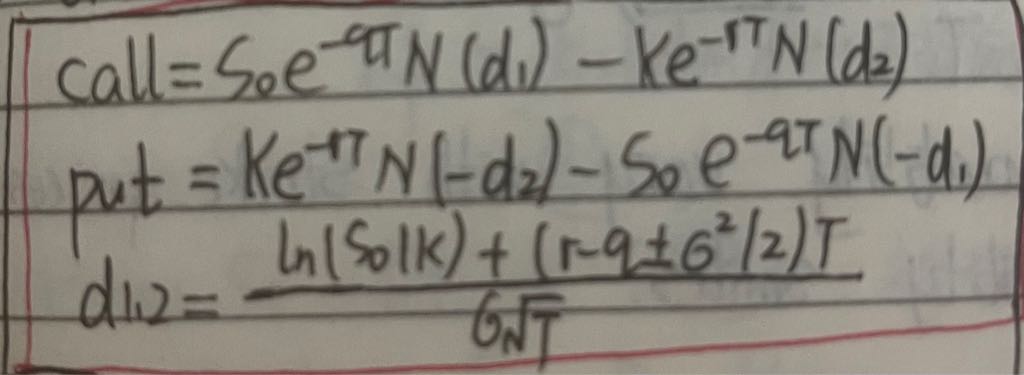 call = S₀e^{-qT} N(d₁) - Ke^{-rT} N(d₂)
put = Ke^{-rT} N(-d₂) - S₀e^{-qT} N(-d₁)
d₁,₂ = \frac{ln(S₀/K) + (r-q±σ²/2)T}{σ√T}